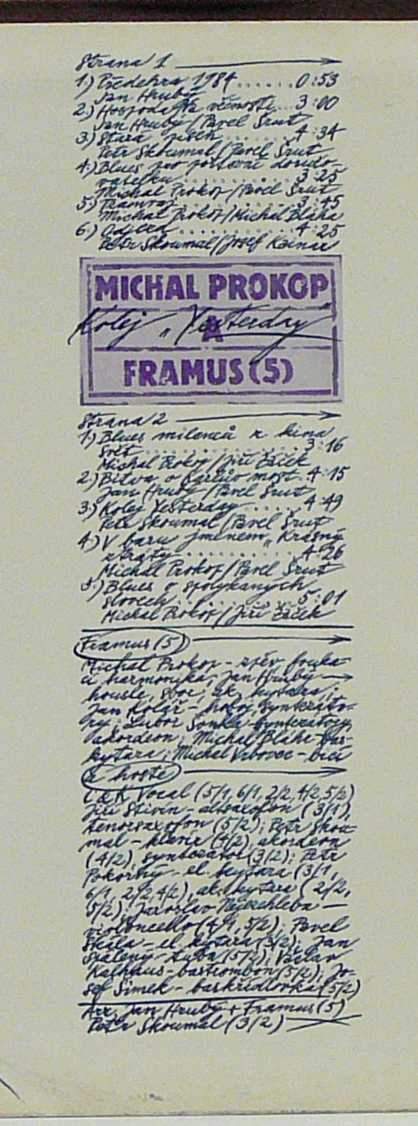 Strana 1
1) Předehra 1984 ...... 0:53
Jan Hrubý
2) Hospoda Na věčnosti ... 3:00
Jan Hrubý / Pavel Šrut
3) Stará píseň ....... 4:34
Petr Skoumal / Pavel Šrut
4) Blues pro poštovní doručo-
vatelku ........ 3:25
Michal Prokop / Pavel Šrut
5) ........ 3:45
Michal Prokop / Michal Bláha
6) Odjezd ........ 4:25
Petr Skoumal / Josef Kainar
MICHAL PROKOP
Kolej „Yesterday"
A
FRAMUS (5)
Strana 2
1) Blues milenců z kina
Svět ........ 3:16
Michal Prokop / Jiří Žáček
2) Bitva o Karlův most . 4:15
Jan Hrubý / Pavel Šrut
3) Kolej Yesterday ..... 4:49
Petr Skoumal / Pavel Šrut
4) V baru jménem „Krásný
ztráty" ........ 4:26
Michal Prokop / Pavel Šrut
5) Blues o spolykaných
slovech ........ 5:01
Michal Prokop / Jiří Žáček
Framus (5)
Michal Prokop - zpěv, fouka-
cí harmonika; Jan Hrubý -
housle, sbor, ak. kytara;
Jan Kolář - hoboj, syntezáto-
ry; Luboš syntezátory,
akordeon; Michal Bláha - bas.
kytara; Michal Vrbovec - bicí
& hosté
C&K Vocal (5/1, 6/1, 2/2, 4/2, 5/2)
Jiří Stivín - altsaxofon (3/1),
tenorsaxofon (5/2); Petr Skou-
mal - klavír (4/2), akordeon
(4/2), syntezátor (3/2); Petr
Pokorný - el. kytara (3/1,
6/1, 2/2, 4/2), ak. kytara (2/2,
5/2); Jaroslav Nejezchleba -
violoncello (6/1, 5/2); Pavel
Skála - el. kytara (3/2); Jan
Spálený - tuba (5/2); Václav
Kalhaus - bastrombon (5/2); Jo-
sef Šimek - baskřídlovka (5/2)
Arr. Jan Hrubý + Framus (5)
Petr Skoumal (3/2)